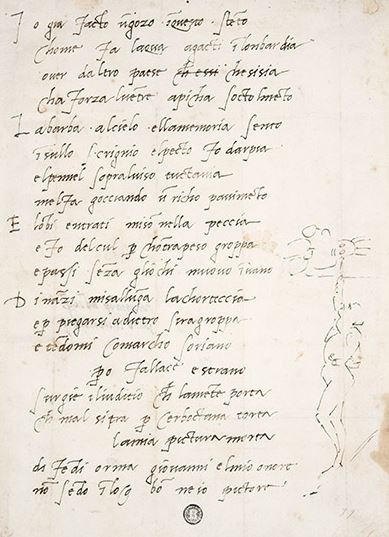 I o gia facto ūgozo īquesto stēto
chome fa lacqua agacti ī lombardia
over daltro paese che essi chesisia
cha forza luētre apicha soctolmēto
La barba alcielo ellamemoria sento
īsullo scrignio elpecto fo darpia
elpennel sopraluiso tuctavia
melfa gocciando ū richo pavimēto
E lōbi entrati misō nella peccia
e fo delcul p chōtrapeso groppa
e passi sēza gliochi muovo īvano
Dināzi misallūga lachorteccia
e p piegarsi adietro siragroppa
e tēdomi comarcho soriano
po fallace e strano
surgie iliudicio ch lamēte porta
ch mal sitra p cerboctana torta
lamia pictura morta
difēdi orma giovanni elmio onore
nō sēdo īlocho bō ne io pictore